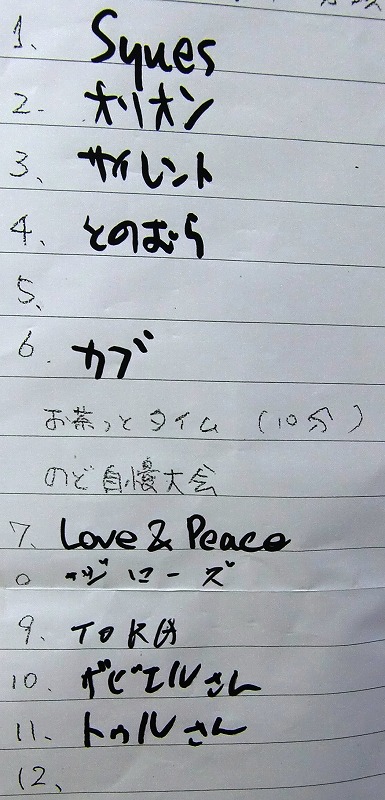 1、 Syues
2. オリオン
3、 サイレント
4、 とのむら
5、
6. カブ
お茶っとタイム (10分)
のど自慢大会
7、 Love & Peace
ローズ
9、 TOKA
10、 ザビエルさん
11、 トゥルさん
12、